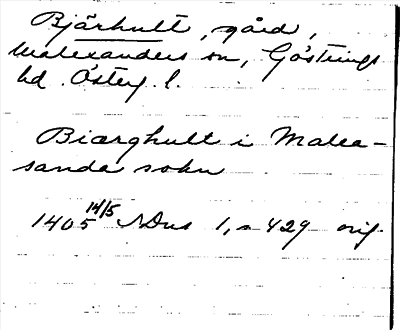 Bjärhult, gård,
Malexanders sn, Göstrings
hd. Österg. l.
Biærghult i Malea-
sanda sokn
1405 14/5 SDns 1, s 429 orig.